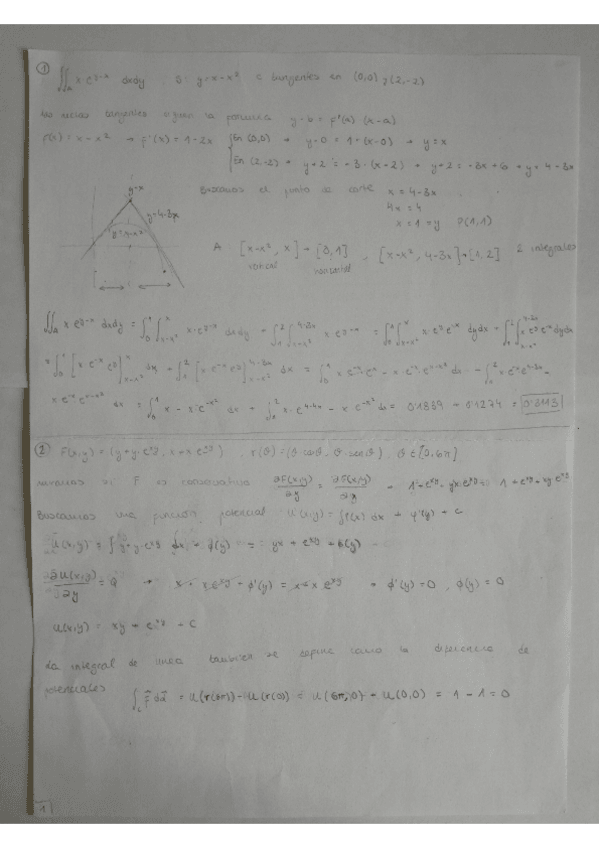 ① ∬_A x e^{y-x} dxdy , S: y=x-x² e tangentes en (0,0) y (2,-2)
las rectas tangentes siguen la formula y-b = f'(a) (x-a)
f(x) = x-x² → f'(x) = 1-2x
En (0,0) → y-0 = 1·(x-0) → y=x
En (2,-2) → y+2 = -3·(x-2) → y+2 = -3x+6 → y=4-3x
y=x
y=4-3x
y=x-x²
Buscamos el punto de corte x = 4-3x
4x = 4
x = 1 = y P(1,1)
A [x-x², x] → [0,1] , [x-x², 4-3x] → [1,2] 2 integrales
vertical horizontal
∬_A x e^{y-x} dxdy = ∫_0^1 ∫_{x-x²}^x x·e^{y-x} dxdy + ∫_1^2 ∫_{x-x²}^{4-3x} x·e^{y-x} = ∫_0^1 ∫_{x-x²}^x x·e^y e^{-x} dydx + ∫_1^2 ∫_{x-x²}^{4-3x} x e^y e^{-x} dydx
= ∫_0^1 [x e^{-x} e^y]_{x-x²}^x dx + ∫_1^2 [x e^{-x} e^y]_{x-x²}^{4-3x} dx = ∫_0^1 x e^{-x}·e^x - x·e^{-x} e^{x-x²} dx + ∫_1^2 x e^{-x} e^{4-3x} -
x e^{-x} e^{x-x²} dx = ∫_0^1 x - x·e^{-x²} dx + ∫_1^2 x·e^{4-4x} - x e^{-x²} dx = 0'1839 + 0'1274 = 0'3113
② F(x,y) = (y+y·e^{xy}, x+x e^{xy}) , r(θ) = (θ cosθ, θ·senθ) , θ ∈ [0,6π]
miramos si F es conservativo ∂F(x,y)/∂y = ∂F(x,y)/∂x → 1+e^{xy}+yx·e^{xy} = 1+e^{xy}+xy e^{xy}
Buscamos una función potencial U(x,y) = ∫P(x) dx + φ(y) + C
U(x,y) = ∫ y+y·e^{xy} dx + φ(y) = yx + e^{xy} + φ(y)
∂U(x,y)/∂y = Q → x + x·e^{xy} + φ'(y) = x+x e^{xy} → φ'(y) = 0 , φ(y) = 0
U(x,y) = xy + e^{xy} + C
La integral de linea también se define como la diferencia de
potenciales ∫_C F dα = U(r(6π)) - U(r(0)) = U(6π,0) - U(0,0) = 1-1 = 0
1